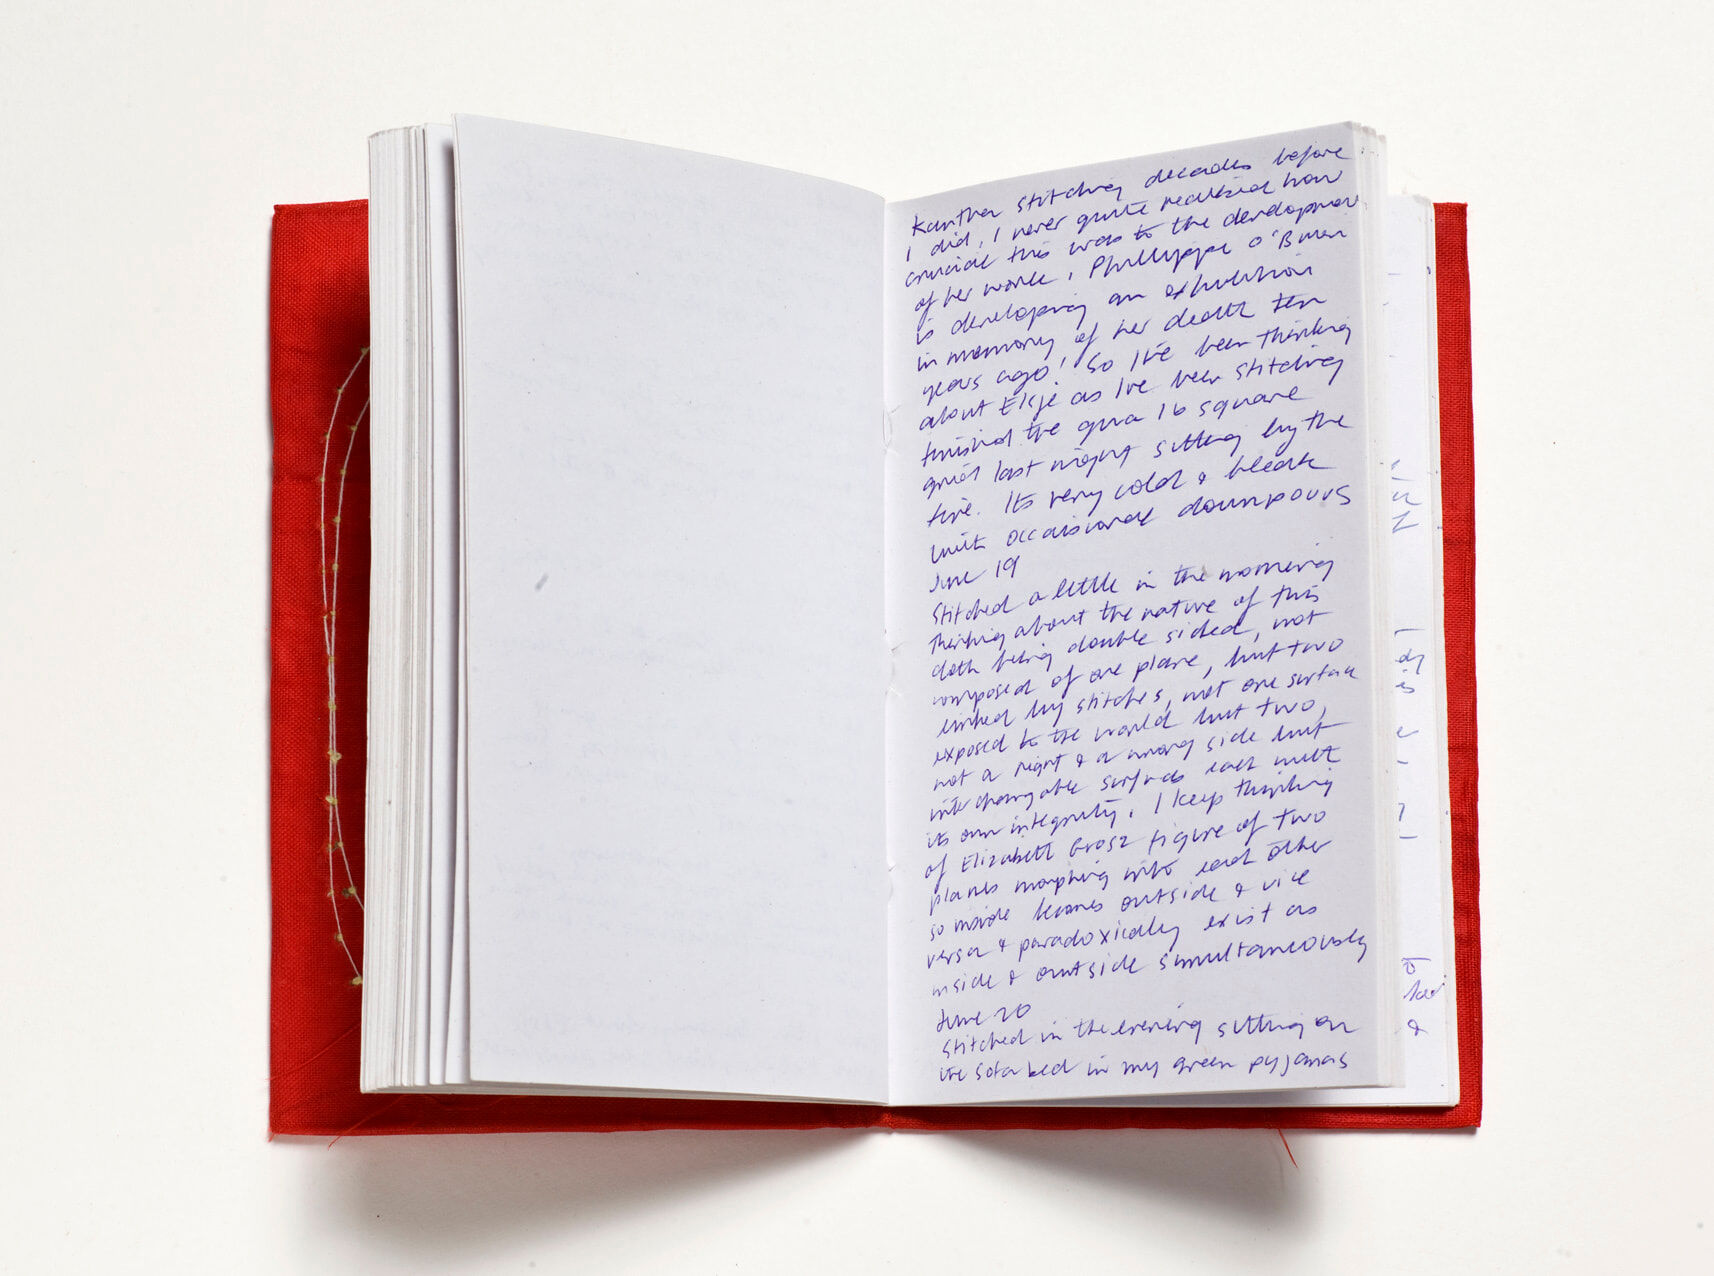 Kantha stitching decades before
I did, I never quite realised how
crucial this was to the development
of her work, Phillippa O'Brien
is developing an exhibition
in memory of her death ten
years ago! So I've been thinking
about Elsje as I've been stitching
finished the 16 square
grid last night sitting by the
fire. Its very cold & bleak
with occasional downpours
June 19
Stitched a little in the morning
thinking about the nature of this
cloth being double sided, not
composed of one plane, but two
linked by stitches, not one surface
exposed to the world but two,
not a right & a wrong side but
interchangable surfaces each with
its own integrity. I keep thinking
of Elizabeth Grosz figure of two
planes morphing into each other
so inside becomes outside & vice
versa & paradoxically exist as
inside & outside simultaneously
June 20
Stitched in the evening sitting on
the sofa bed in my green pyjamas
is
&